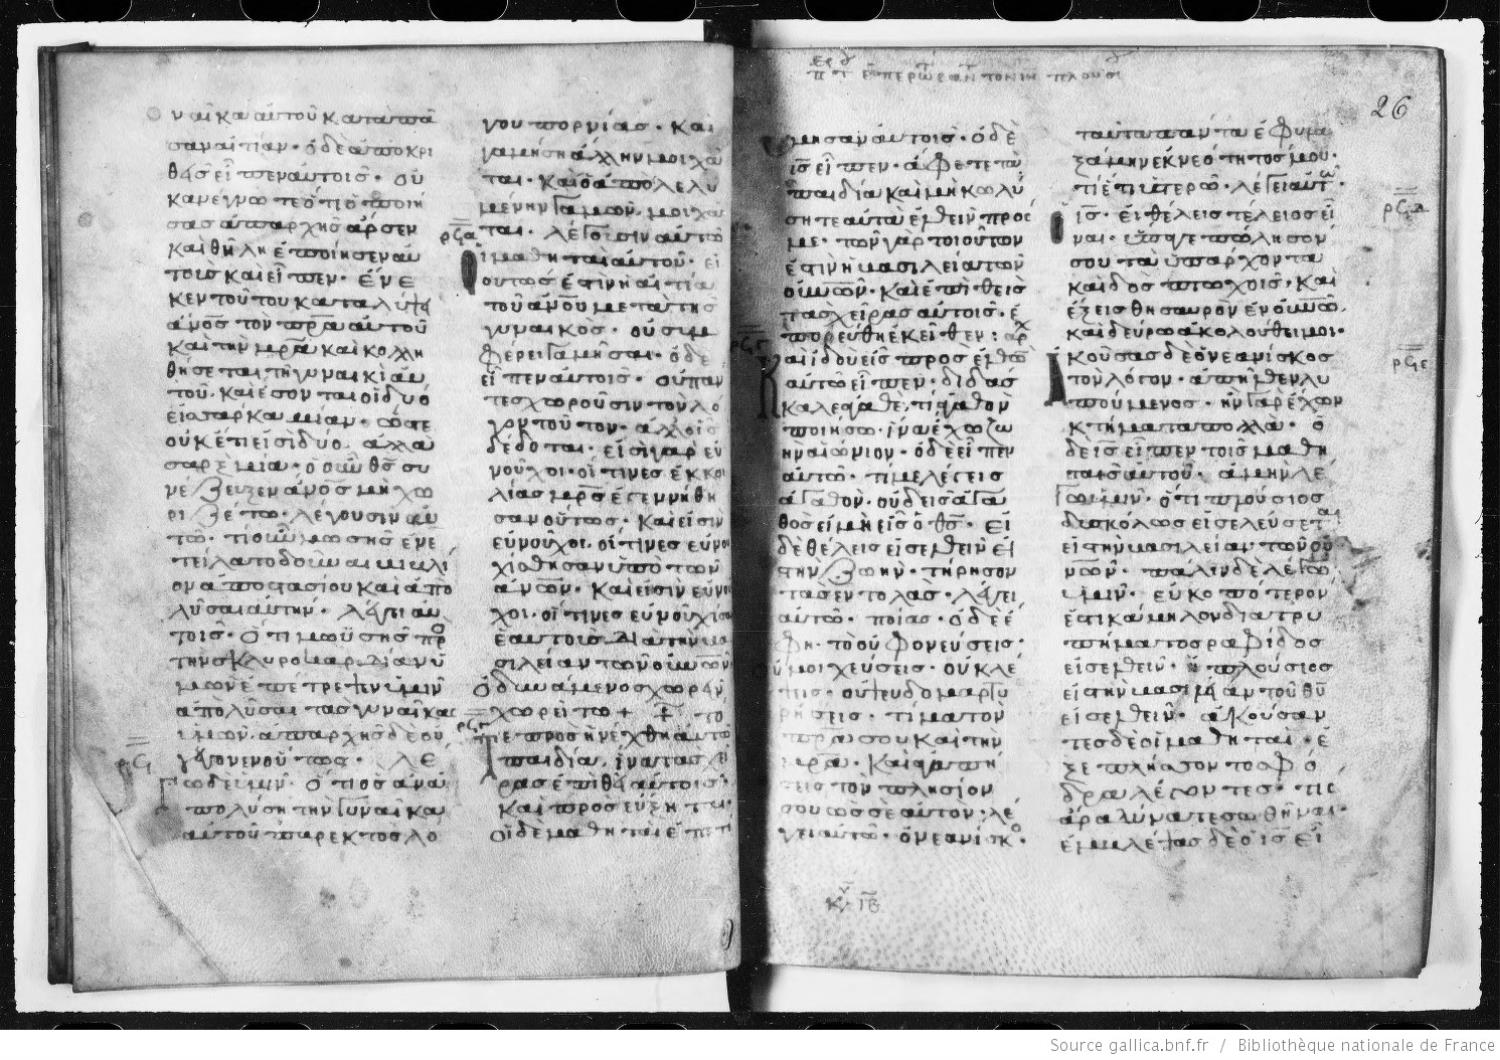 ναῖκα αὐτοῦ κατὰ πᾶ
σαν αἰτίαν· ὁ δὲ ἀποκρι
θεὶς εἶπεν αὐτοῖς· οὐ
κ ἀνέγνωτε ὅτι ὁ ποιή
σας ἀπ αρχῆς ἄρσεν
καὶ θῆλη ἐποίησεν αὐ
τοὺς καὶ εἶπεν· ἕνε
κεν τούτου καταλείψει
ἄνος τὸν πρα αὐτοῦ
καὶ τὴν μρα καὶ κολλη
θήσεται τῇ γυναικὶ αὐ
τοῦ· καὶ ἔσονται οἱ δύο
εἰς σάρκα μίαν· ὥστε
οὐκ ἔτι εἰσὶ δύο ἀλλὰ
σὰρξ μία· ὃ οὖν ὁ θς συ
νέζευξεν ἄνος μὴ χω
ριζέτω· λέγουσιν αὐ
τῷ· τί οὖν μωσῆς ἐνε
τείλατο δοῦναι βιβλί
ον ἀποστασίου καὶ ἀπο
λῦσαι αὐτήν· λέγει αὐ
τοῖς· ὅτι μωϋσῆς πρ
τὴν σκληροκαρδίαν ὑ
μῶν ἐπέτρεψεν ὑμῖν
ἀπολῦσαι τὰς γυναῖκας
ὑμῶν· ἀπ αρχῆς δὲ οὐ
γέγονεν οὕτως· λέ
γω δὲ ὑμῖν· ὅτι ὃς ἂν ἀ
πολύσῃ τὴν γυναῖκα
αὐτοῦ παρεκτὸς λό
γου πορνίας· καὶ
γαμήσῃ ἄλλην μοιχᾶ
ται· καὶ ὁ ἀπολελυ
μένην γαμῶν μοιχᾶ
ται· λέγουσιν αὐτῷ
οἱ μαθηταὶ αὐτοῦ· εἰ
οὕτως ἐστὶν ἡ αἰτία
τοῦ ἀνου μετὰ τῆς
γυναικός· οὐ συμ
φέρει γαμῆσαι· ὁ δὲ
εἶπεν αὐτοῖς· οὐ πάν
τες χωροῦσιν τὸν λό
γον τοῦτον· ἀλλ οἷς
δέδοται· εἰσὶ γὰρ εὐ
νοῦχοι· οἵτινες ἐκ κοι
λίας μρς ἐγεννήθη
σαν οὕτως· καὶ εἰσὶν
εὐνοῦχοι οἵτινες εὐνου
χίσθησαν ὑπὸ τῶν
ἀνων· καὶ εἰσὶν εὐνοῦ
χοι· οἵτινες εὐνούχισαν
ἑαυτοὺς διὰ τὴν βα
σιλείαν τῶν οὐνων·
ὁ δυνάμενος χωρεῖν
χωρείτω + + τό
τε προσηνέχθη αὐτῷ
παιδία· ἵνα τὰς χεῖ
ρας ἐπιθῇ αὐτοῖς·
καὶ προσεύξηται·
οἱ δὲ μαθηταὶ ἐπετί
26
μησαν αὐτοῖς· ὁ δὲ
ις εἶπεν· ἄφετε τὰ
παιδία καὶ μὴ κωλύ
σητε αὐτὰ ἐλθεῖν πρός
με· τῶν γὰρ τοιούτων
ἐστὶν ἡ βασιλεία τῶν
οὐνων· καὶ ἐπιθεὶς
τὰς χεῖρας αὐτοῖς· ἐ
πορεύθη ἐκεῖθεν:
καὶ ἰδοὺ εἷς προσελθὼν
αὐτῷ εἶπεν· διδάσ
καλε ἀγαθέ, τί ἀγαθὸν
ποιήσω· ἵνα ἔχω ζω
ὴν αἰώνιον· ὁ δὲ εἶπεν
αὐτῷ· τί με λέγεις
ἀγαθόν· οὐδεὶς ἀγα
θὸς εἰ μὴ εἷς ὁ θς· εἰ
δὲ θέλεις εἰσελθεῖν εἰς
τὴν ζωήν· τήρησον
τὰς ἐντολάς· λέγει
αὐτῷ· ποίας· ὁ δὲ ἔ
φη· τὸ οὐ φονεύσεις·
οὐ μοιχεύσεις· οὐ κλέ
ψεις· οὐ ψευδομαρτυ
ρήσεις· τίμα τὸν
πρα σου καὶ τὴν
μρα· καὶ ἀγαπή
σεις τὸν πλησίον
σου ὡς σεαυτόν· λέ
γει αὐτῷ· ὁ νεανίσκος·
ταῦτα πάντα ἐφυλα
ξάμην ἐκ νεότητός μου·
τί ἔτι ὑστερῶ· λέγει αὐτῷ
ὁ ις· εἰ θέλεις τέλειος εἶ
ναι· ὕπαγε πώλησόν
σου τὰ ὑπάρχοντα
καὶ δὸς πτωχοῖς· καὶ
ἕξεις θησαυρὸν ἐν οὐνῷ·
καὶ δεῦρο ἀκολούθει μοι·
ἀκούσας δὲ ὁ νεανίσκος
τὸν λόγον· ἀπῆλθεν λυ
πούμενος· ἦν γὰρ ἔχων
κτήματα πολλά· ὁ
δὲ ις εἶπεν τοῖς μαθη
ταῖς αὐτοῦ· ἀμὴν λέ
γω ὑμῖν· ὅτι πλούσιος
δυσκόλως εἰσελεύσεται
εἰς τὴν βασιλείαν τῶν οὐ
νων· πάλιν δὲ λέγω
ὑμῖν· εὐκοπότερόν
ἐστι κάμηλον διὰ τρυ
πήματος ραφίδος
εἰσελθεῖν· ἢ πλούσιος
εἰς τὴν βασιλείαν τοῦ θυ
εἰσελθεῖν· ἀκούσαν
τες δὲ οἱ μαθηταὶ· ἐ
ξεπλήσσοντο σφό
δρα λέγοντες· τίς
ἄρα δύναται σωθῆναι·
ἐμβλέψας δὲ ὁ ις εἶ